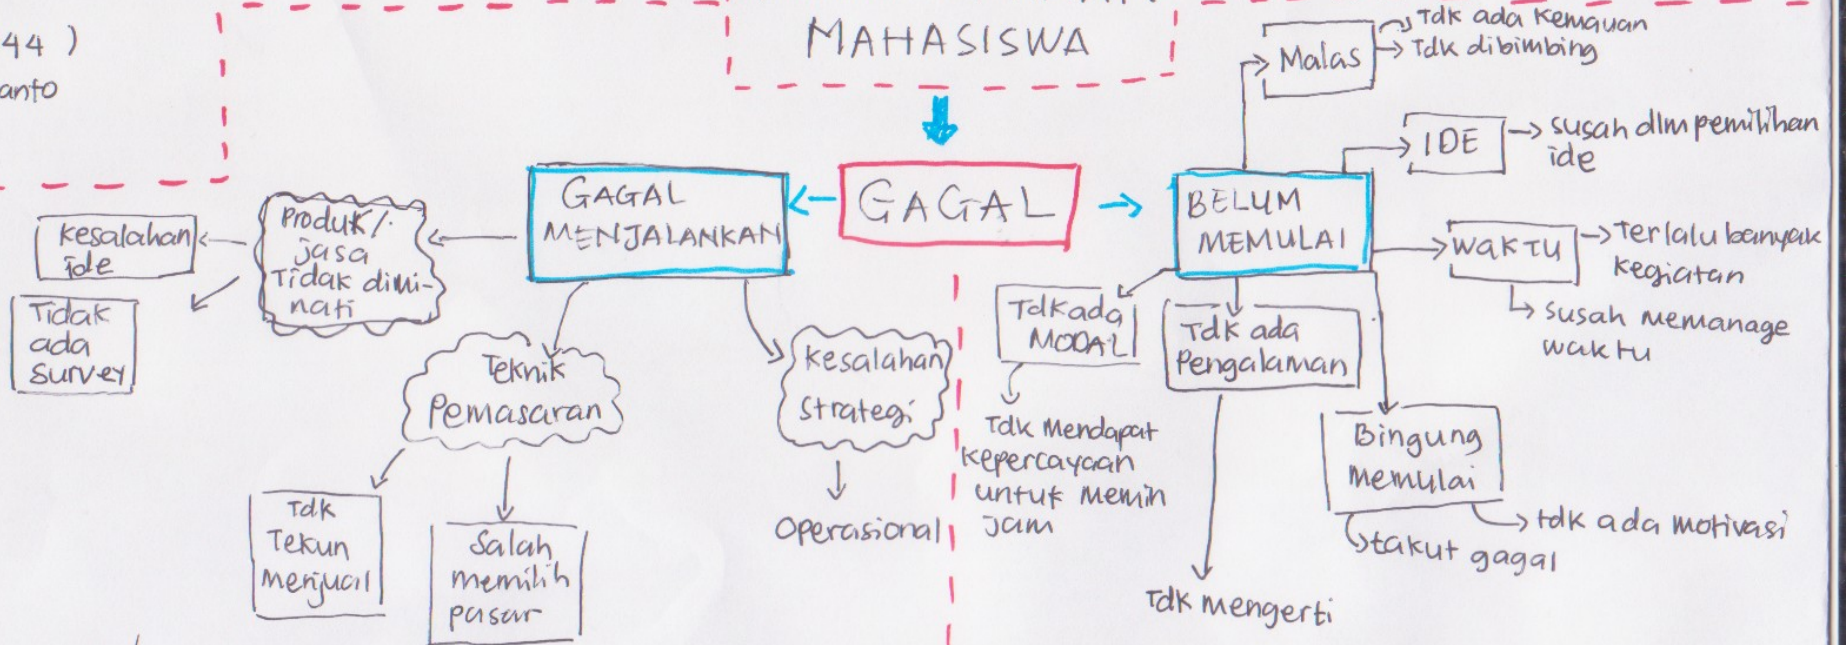 44 )
anto
MAHASISWA
GAGAL
GAGAL
MENJALANKAN
Produk/
jasa
Tidak dimi-
nati
Kesalahan
ide
Tidak
ada
survey
Teknik
Pemasaran
Tdk
Tekun
Menjual
Salah
memilih
pasar
Kesalahan
strategi
Operasional
BELUM
MEMULAI
Malas
Tdk ada Kemauan
Tdk dibimbing
IDE
susah dlm pemilihan
ide
WAKTU
Terlalu banyak
kegiatan
susah memanage
waktu
Tdk ada
MODAL
Tdk Mendapat
Kepercayaan
untuk Memin
jam
Tdk ada
Pengalaman
Tdk mengerti
Bingung
memulai
takut gagal
tdk ada motivasi